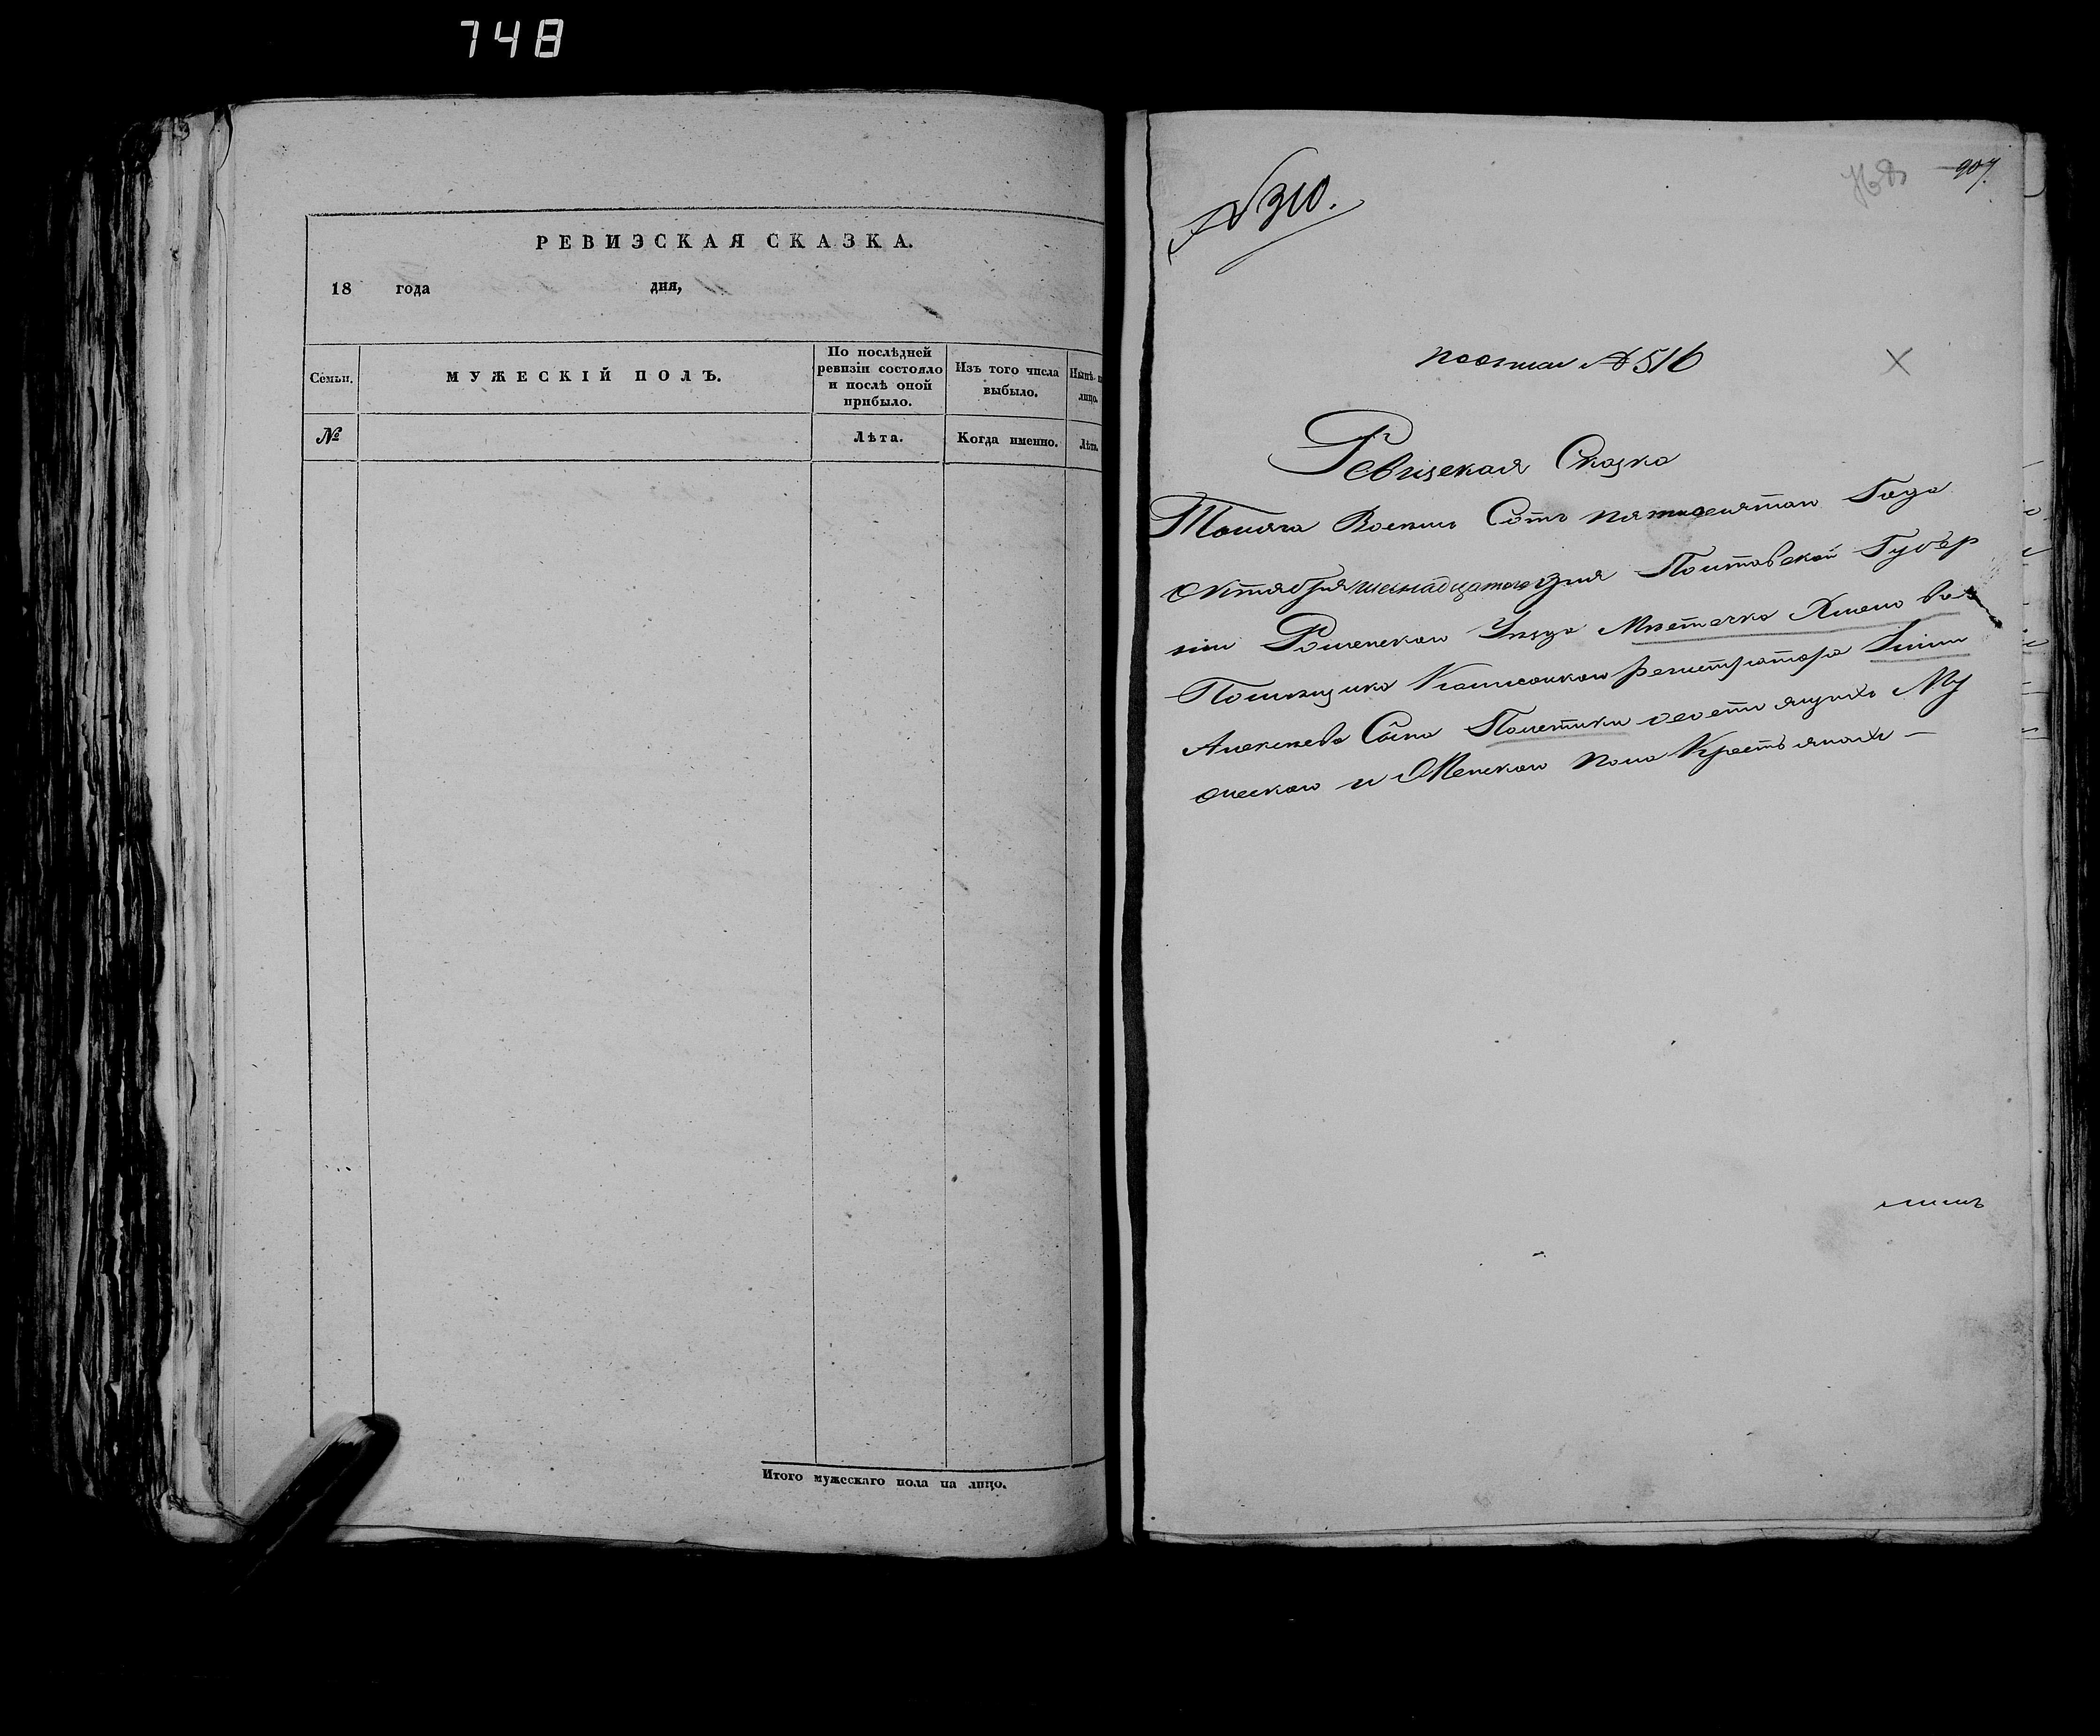 748
РЕВИЗСКАЯ СКАЗКА.
18 года дня,
Семьи.
МУЖЕСКІЙ ПОЛЪ.
По послѣдней
ревизіи состояло
и послѣ оной
прибыло.
Изъ того числа
выбыло.
лицо.
№
Лѣта.
Когда именно.
Лѣта.
Итого мужескаго пола на лицо.
№ 310.
907.
№ 516
Ревизская Сказка
Тысяча Восемь Сотъ пятидесятого Года
Октября шеснадцатого дня Полтавской Губер
ніи Роменского Уѣзда Мѣстечка Хмелова
Помѣщика Коллежского регистратора
Алексѣева Сына Полетики о состоящихъ Му
жеского и Женского пола Крестьянахъ —